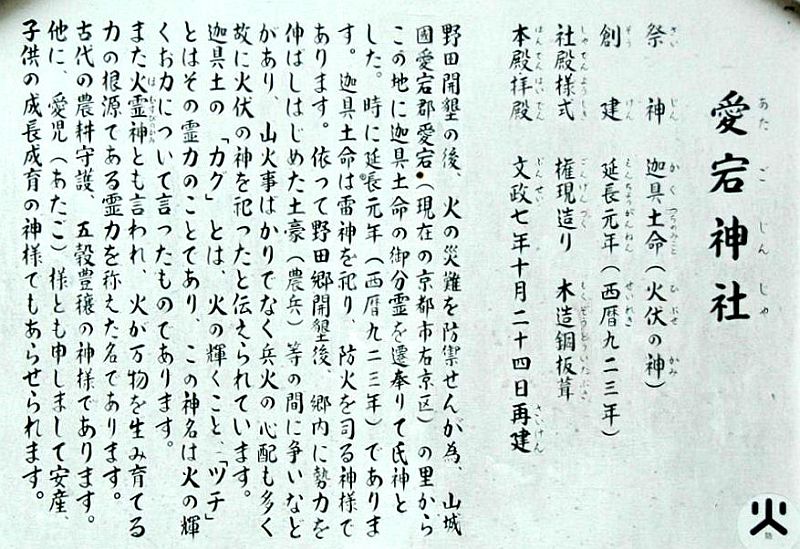 愛宕神社
あたごじんじゃ
祭神 迦具土命(火伏の神)
創建 延長元年(西暦九二三年)
社殿様式 権現造り 木造銅板葺
本殿拝殿 文政七年十月二十四日再建
野田開墾の後、火の災難を防禦せんが為、山城
國愛宕郡愛宕(現在の京都市右京区)の里から
この地に迦具土命の御分霊を遷奉りて氏神と
した。時に延長元年(西暦九二三年)でありま
す。迦具土命は雷神を祀り、防火を司る神様で
あります。依って野田郷開墾後、郷内に勢力を
伸ばしはじめた土豪(農兵)等の間に争いなど
があり、山火事ばかりでなく兵火の心配も多く
故に火伏の神を祀ったと伝えられています。
迦具土の「カグ」とは、火の輝くこと、「ツチ」
とはその霊力のことであり、この神名は火の輝
くお力について言ったものであります。
また火霊神とも言われ、火が万物を生み育てる
力の根源である霊力を称えた名であります。
古代の農耕守護、五穀豊穣の神様であります。
他に、愛児(あたご)様とも申しまして安産、
子供の成長成育の神様でもあらせられます。